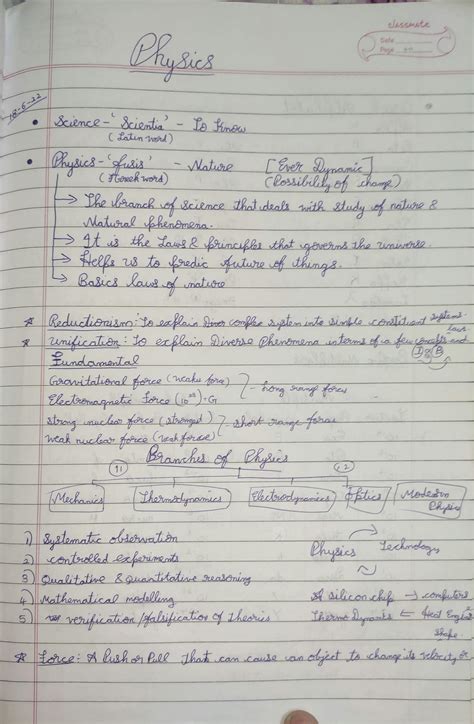 classmate
Date
Page
Physics
18-6-22
• Science - 'Scientia' - To Know
(Latin word)
• Physics - 'fusis' - Nature [Ever Dynamic]
(Greek word) (Possibility of change)
→ The branch of science that deals with study of nature &
Natural phenomena.
→ It is the Laws & principles that governs the universe.
→ Helps us to predic future of things.
→ Basics laws of nature
* Reductionism: To explain complex system into simple constituent systems
* Unification: To explain Diverse Phenomena interms of a few concepts and Laws
Fundamental
Gravitational force (weake force) - Long rang force
Electromagnetic Force
Strong nuclear force (strongest) - short range force
weak nuclear force (weak force)
Branches of Physics
Mechanics Thermodynamics Electrodynamics Optics Modern Physic
1) Systematic observation
2) controlled experiments
3) Qualitative & Quantitative reasoning
4) Mathematical modelling
5) verification /falsification of Theories
Physics Technology
A silicon chip → computers
Thermo Dynamics ← Heat Engine
* Force: A Push or Pull That can cause an object to change its velocity or